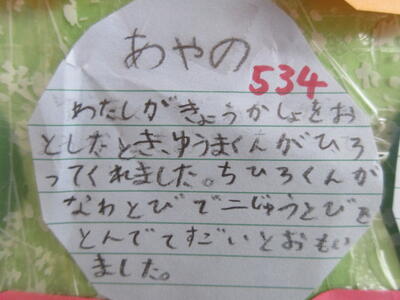 あやの
534
わたしがきょうかしょをお
としたとき、ゆうまくんがひろ
ってくれました。ちひろくんが
なわとびで二じゅうとびを
とんですごいとおもい
ました。